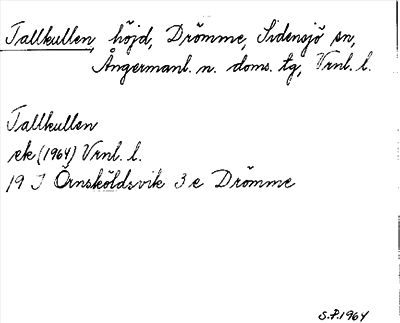 Tallkullen, höjd, Drömme, Sidensjö sn,
Ångermanl. n. doms. tg, Vrnl. l.
Tallkullen
ek (1964) Vrnl. l.
19 J Örnsköldsvik 3 e Drömme
S.P. 1964